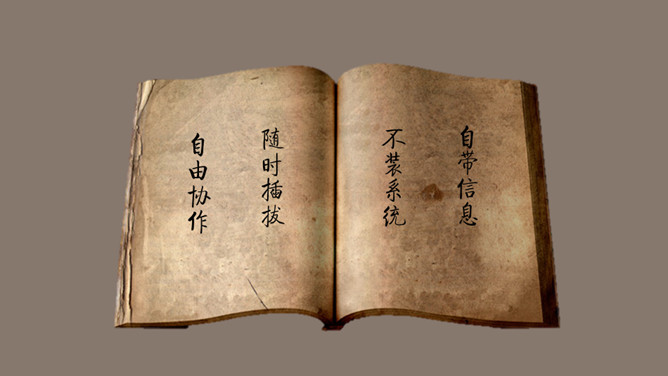 自带信息
不装系统
随时插拔
自由协作